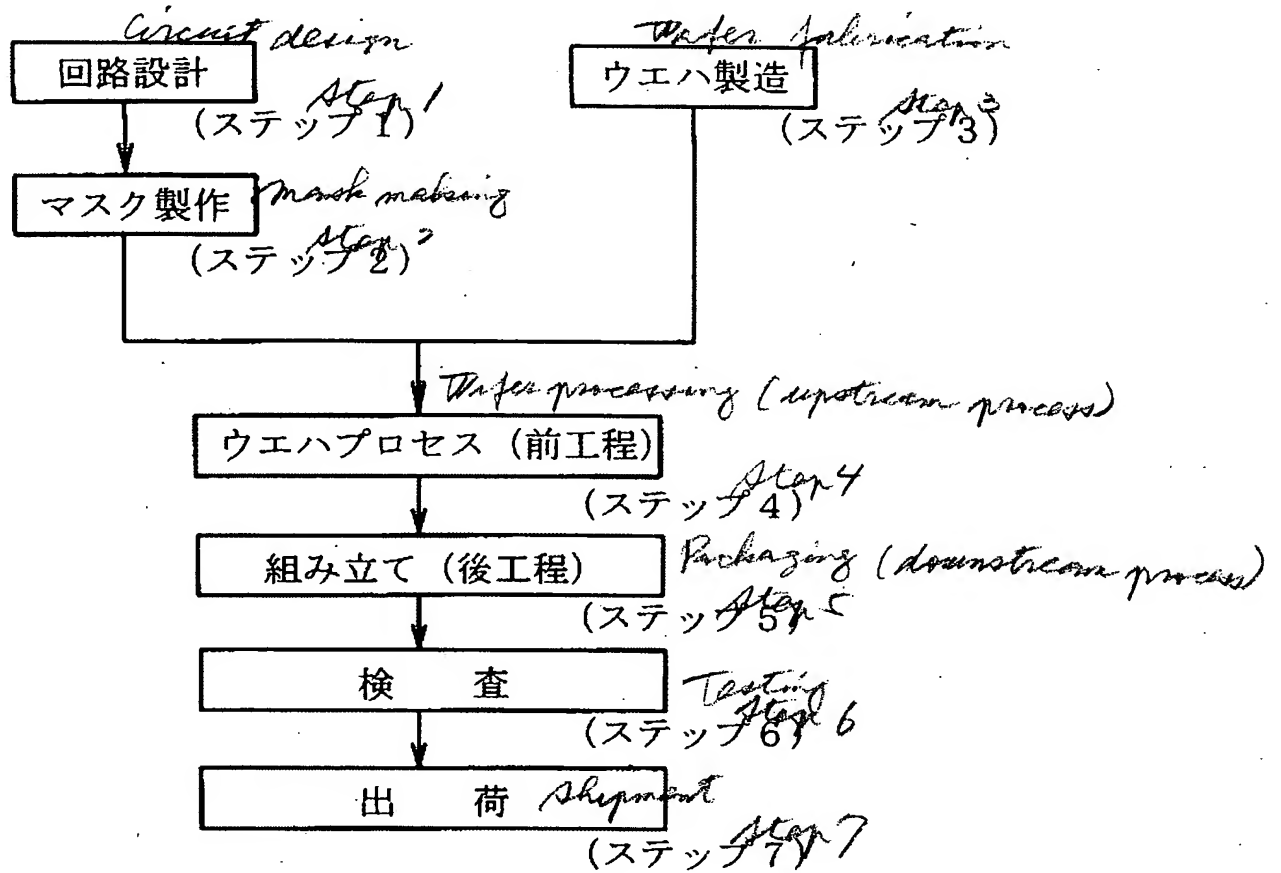 Circuit design
回路設計
Step 1
(ステップ1)
マスク製作
mask making
Step 2
(ステップ2)
Wafer fabrication
ウエハ製造
Step 3
(ステップ3)
Wafer processing (upstream process)
ウエハプロセス (前工程)
Step 4
(ステップ4)
組み立て (後工程)
Packaging (downstream process)
Step 5
(ステップ5)
検 査
Testing
Step 6
(ステップ6)
出 荷
Shipment
Step 7
(ステップ7)